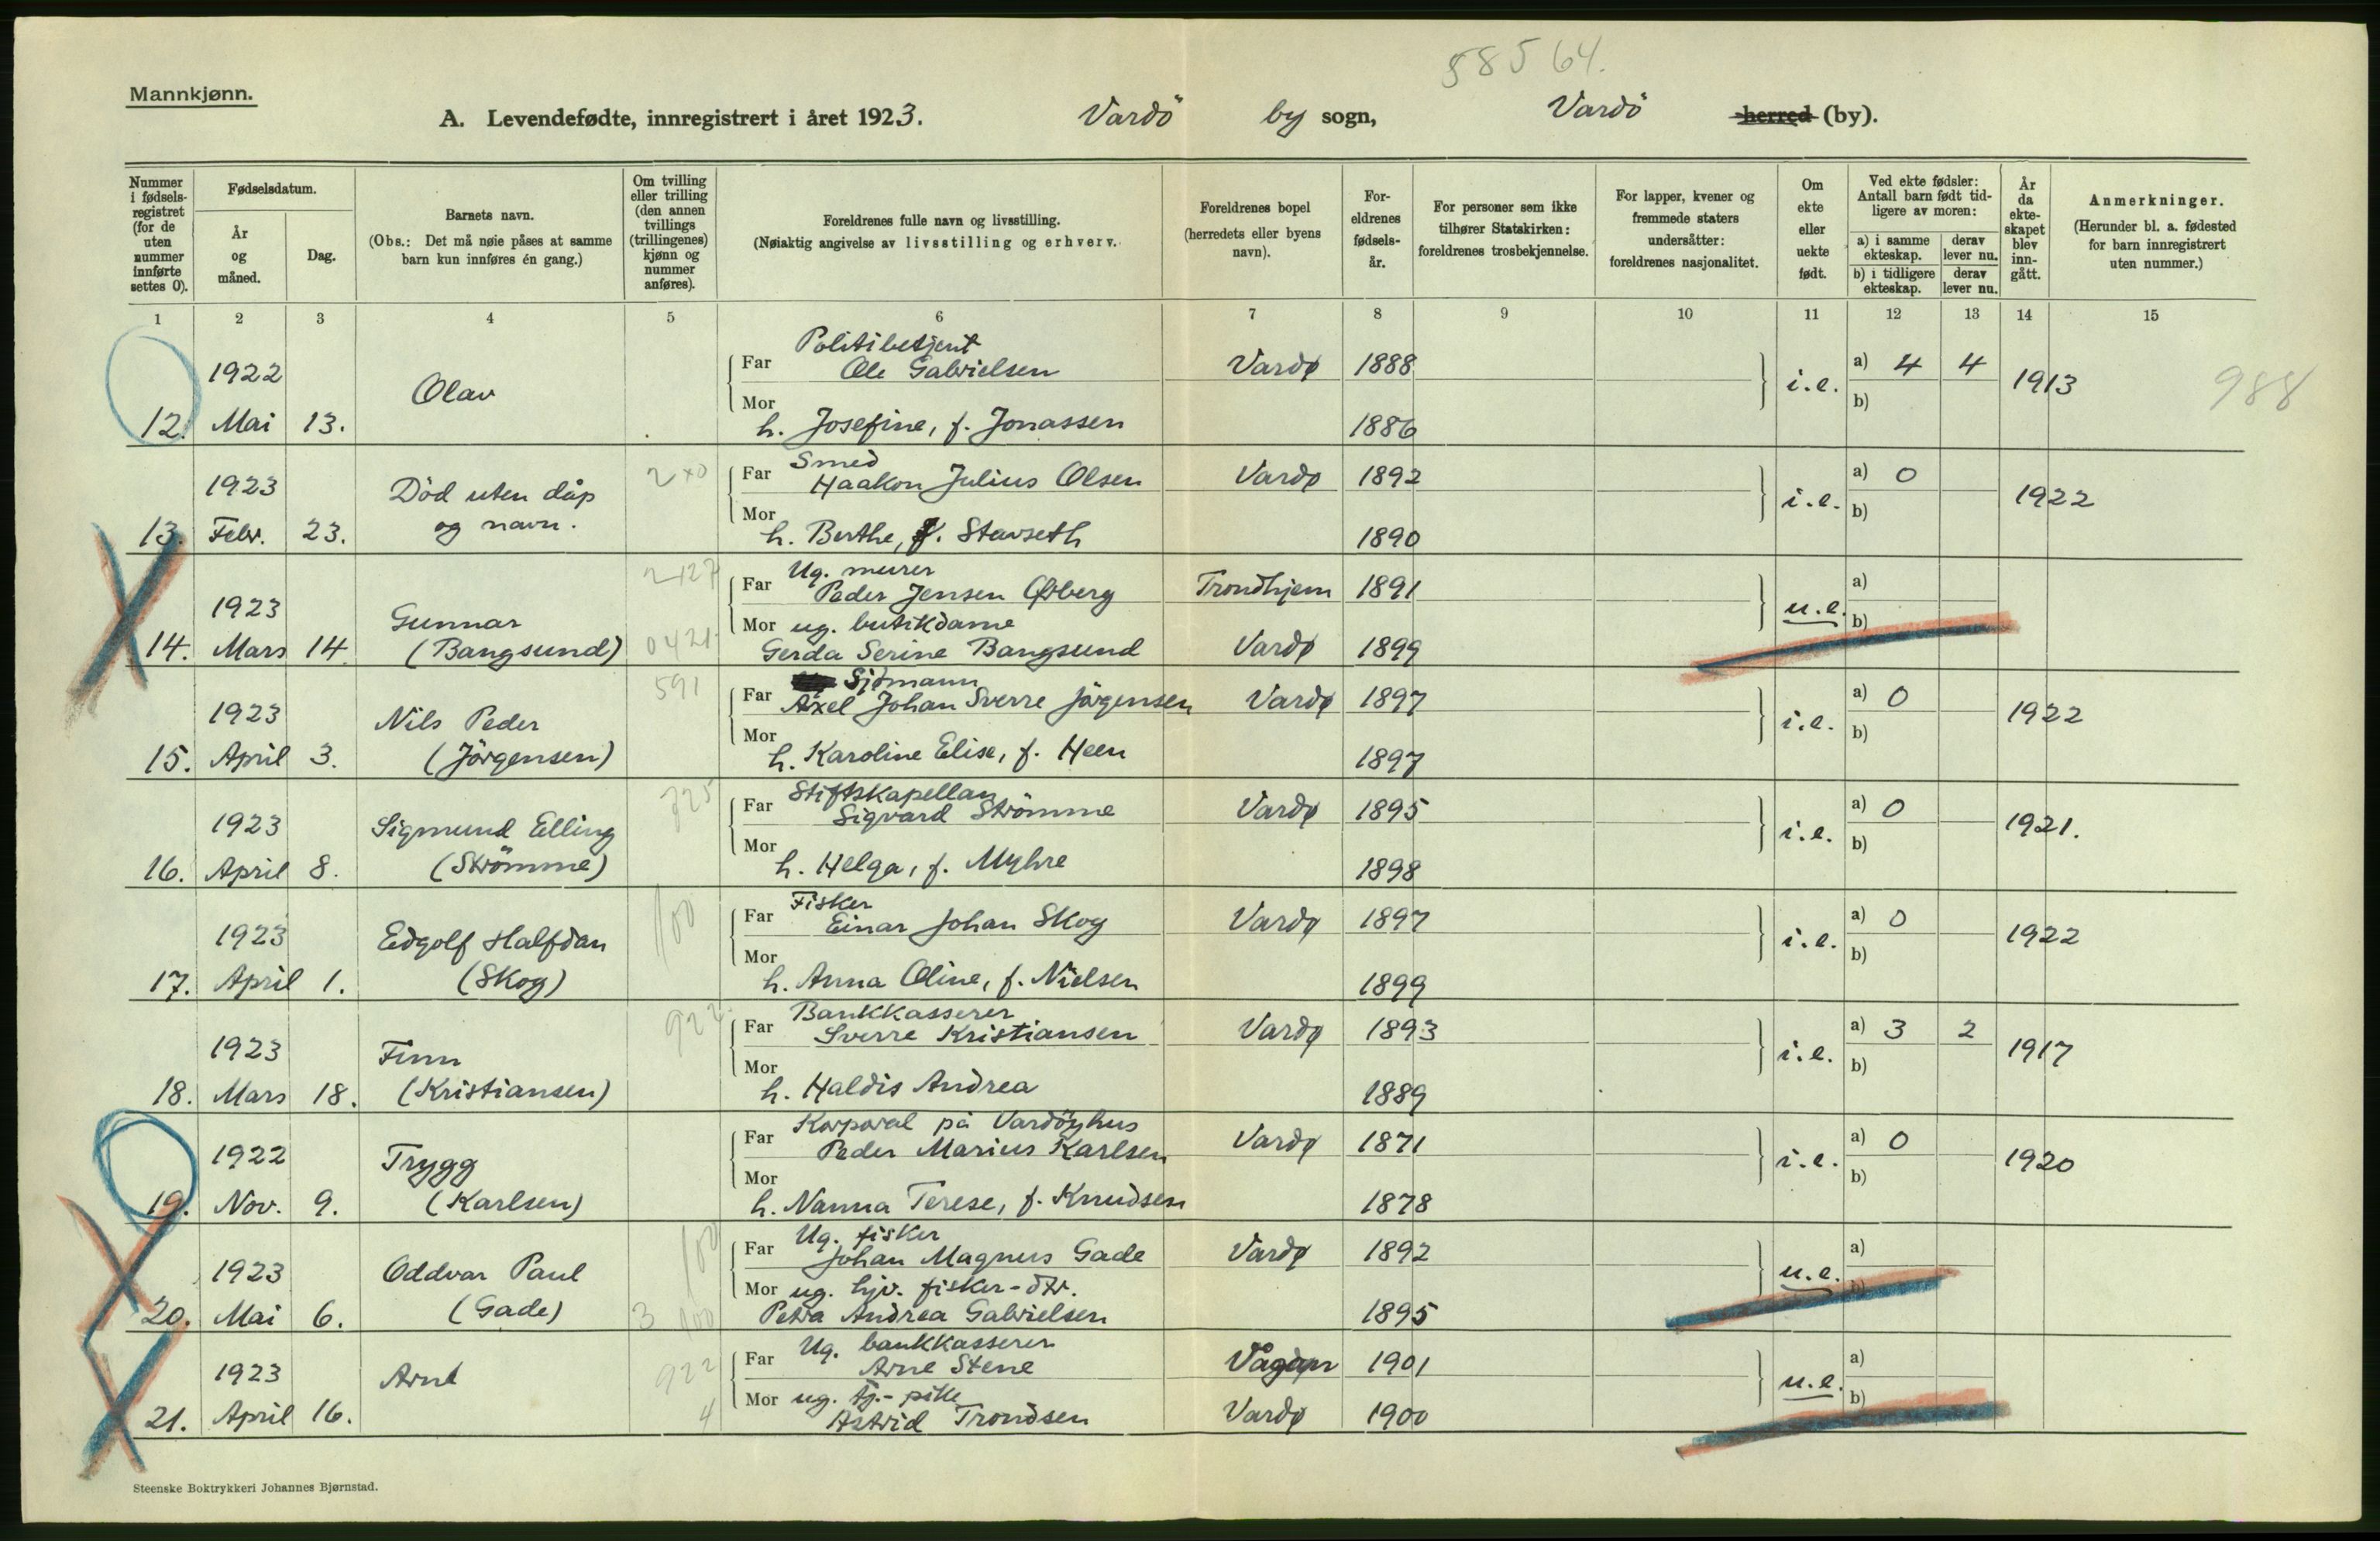 58564.
Mannkjønn.
A. Levendefødte, innregistrert i året 1923. Vardö by sogn, Vardö herred (by).
Nummer i fødsels-registret (for de uten nummer innførte settes 0).
Fødselsdatum.
År og måned.
Dag.
Barnets navn.
(Obs.: Det må nøie påses at samme barn kun innføres én gang.)
Om tvilling eller trilling (den annen tvillings (trillingenes) kjønn og nummer anføres).
Foreldrenes fulle navn og livsstilling.
(Nøiaktig angivelse av livsstilling og erhverv.)
Foreldrenes bopel (herredets eller byens navn).
For-eldrenes fødsels-år.
For personer som ikke tilhører Statskirken: foreldrenes trosbekjennelse.
For lapper, kvener og fremmede staters undersåtter: foreldrenes nasjonalitet.
Om ekte eller uekte født.
Ved ekte fødsler: Antall barn født tid-ligere av moren:
a) i samme ekteskap. derav lever nu.
b) i tidligere ekteskap. derav lever nu.
År da ekte-skapet blev inn-gått.
Anmerkninger.
(Herunder bl. a. fødested for barn innregistrert uten nummer.)
1 2 3 4 5 6 7 8 9 10 11 12 13 14 15
Politibetjent
1922 Olav Far Ole Gabrielsen Vardø 1888 i.e. a) 4 4 1913 988
12. Mai 13. Mor h. Josefine, f. Jonassen 1886 b)
Smed
1923 Död uten dåp 2 x0 Far Haakon Julius Olsen Vardø 1892 i.e. a) 0 1922
13. Febr. 23. og navn. Mor h. Berthe, f. Stavseth 1890 b)
Ug. murer
1923 Gunnar 2127 Far Peder Jensen Øberg Trondhjem 1891 u.e. a)
Mor ug. butikdame b)
14. Mars 14 (Bangsund) 0421 Gerda Serine Bangsund Vardø 1899
Sjömann
1923 Nils Peder 591 Far Axel Johan Sverre Jörgensen Vardø 1897 i.e. a) 0 1922
15. April 3. (Jörgensen) Mor h. Karoline Elise, f. Heen 1897 b)
Stiftskapellan
1923 Sigmund Elling Far Sigvard Strömme Vardø 1895 i.e. a) 0 1921.
16. April 8. (Strömme) Mor h. Helga, f. Myhre 1898 b)
Fisker
1923 Edgolf Halfdan 100 Far Einar Johan Skog Vardø 1897 i.e. a) 0 1922
17. April 1. (Skog) Mor h. Anna Oline, f. Nielsen 1899 b)
Bankkasserer
1923 Finn 922 Far Sverre Kristiansen Vardø 1893 i.e. a) 3 2 1917
18. Mars 18. (Kristiansen) Mor h. Haldis Andrea 1889 b)
Korporal på Vardöyhus
1922 Trygg Far Peder Marius Karlsen Vardø 1871 i.e. a) 0 1920
19. Nov. 9. (Karlsen) Mor h. Nanna Terese, f. Knudsen 1878 b)
Ug. fisker
1923 Oddvar Paul 100 Far Johan Magnus Gade Vardø 1892 u.e. a)
Mor ug. hjv. fisker-dtr. b)
20. Mai 6. (Gade) 3 100 Petra Andrea Gabrielsen 1895
Ug. bankkasserer
1923 Arne 922 Far Arne Stene Vågan 1901 u.e. a)
Mor ug. tj.-pike b)
21. April 16. 4 Astrid Trondsen Vardø 1900
Steenske Boktrykkeri Johannes Bjørnstad.